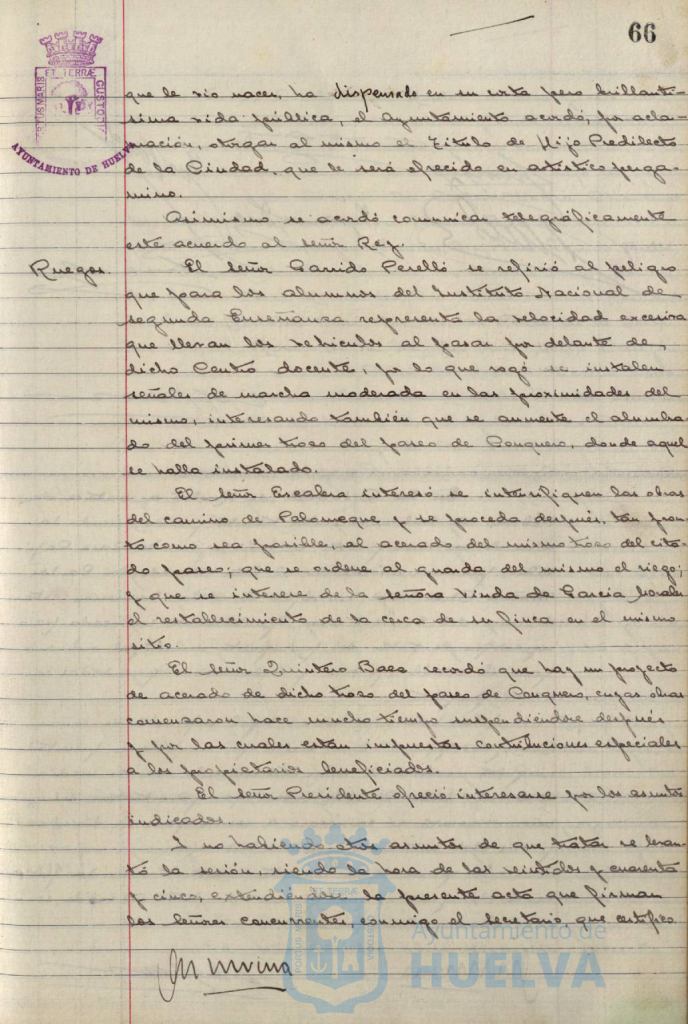 66
ET TERRÆ
PORTUS MARIS
CUSTODIA
AYUNTAMIENTO DE HUELVA
que le vio nacer, ha dispensado en su corta pero brillantí-
sima vida pública, el Ayuntamiento acordó, por acla-
mación, otorgar al mismo el Título de Hijo Predilecto
de la Ciudad, que le será ofrecido en artístico perga-
mino.
Asimismo se acordó comunicar telegráficamente
este acuerdo al señor Rey.
Ruegos.
El señor Garrido Perelló se refirió al peligro
que para los alumnos del Instituto Nacional de
segunda Enseñanza representa la velocidad excesiva
que llevan los vehículos al pasar por delante de
dicho Centro docente, por lo que rogó se instalen
señales de marcha moderada en las proximidades del
mismo, interesando también que se aumente el alumbra-
do del primer trozo del paseo de Conquero, donde aquel
se halla instalado.
El señor Escalera interesó se intensifiquen las obras
del camino de Palomeque y se proceda después, tan pron-
to como sea posible, al acerado del mismo trozo del cita-
do paseo; que se ordene al guarda del mismo el riego;
y que se interese de la señora Viuda de García
el restablecimiento de la cerca de su finca en el mismo
sitio.
El señor Quintero Baez recordó que hay un proyecto
de acerado de dicho trozo del paseo de Conquero, cuyas obras
comenzaron hace mucho tiempo suspendiéndose después
y por las cuales están impuestas contribuciones especiales
a los propietarios beneficiados.
El señor Presidente ofreció interesarse por los asuntos
indicados.
Y no habiendo otros asuntos de que tratar se levan-
tó la sesión, siendo la hora de las veintidos y cuarenta
y cinco, extendiéndose la presente acta que firman
los señores concurrentes, conmigo el secretario, que certifico.
Ayuntamiento de
HUELVA